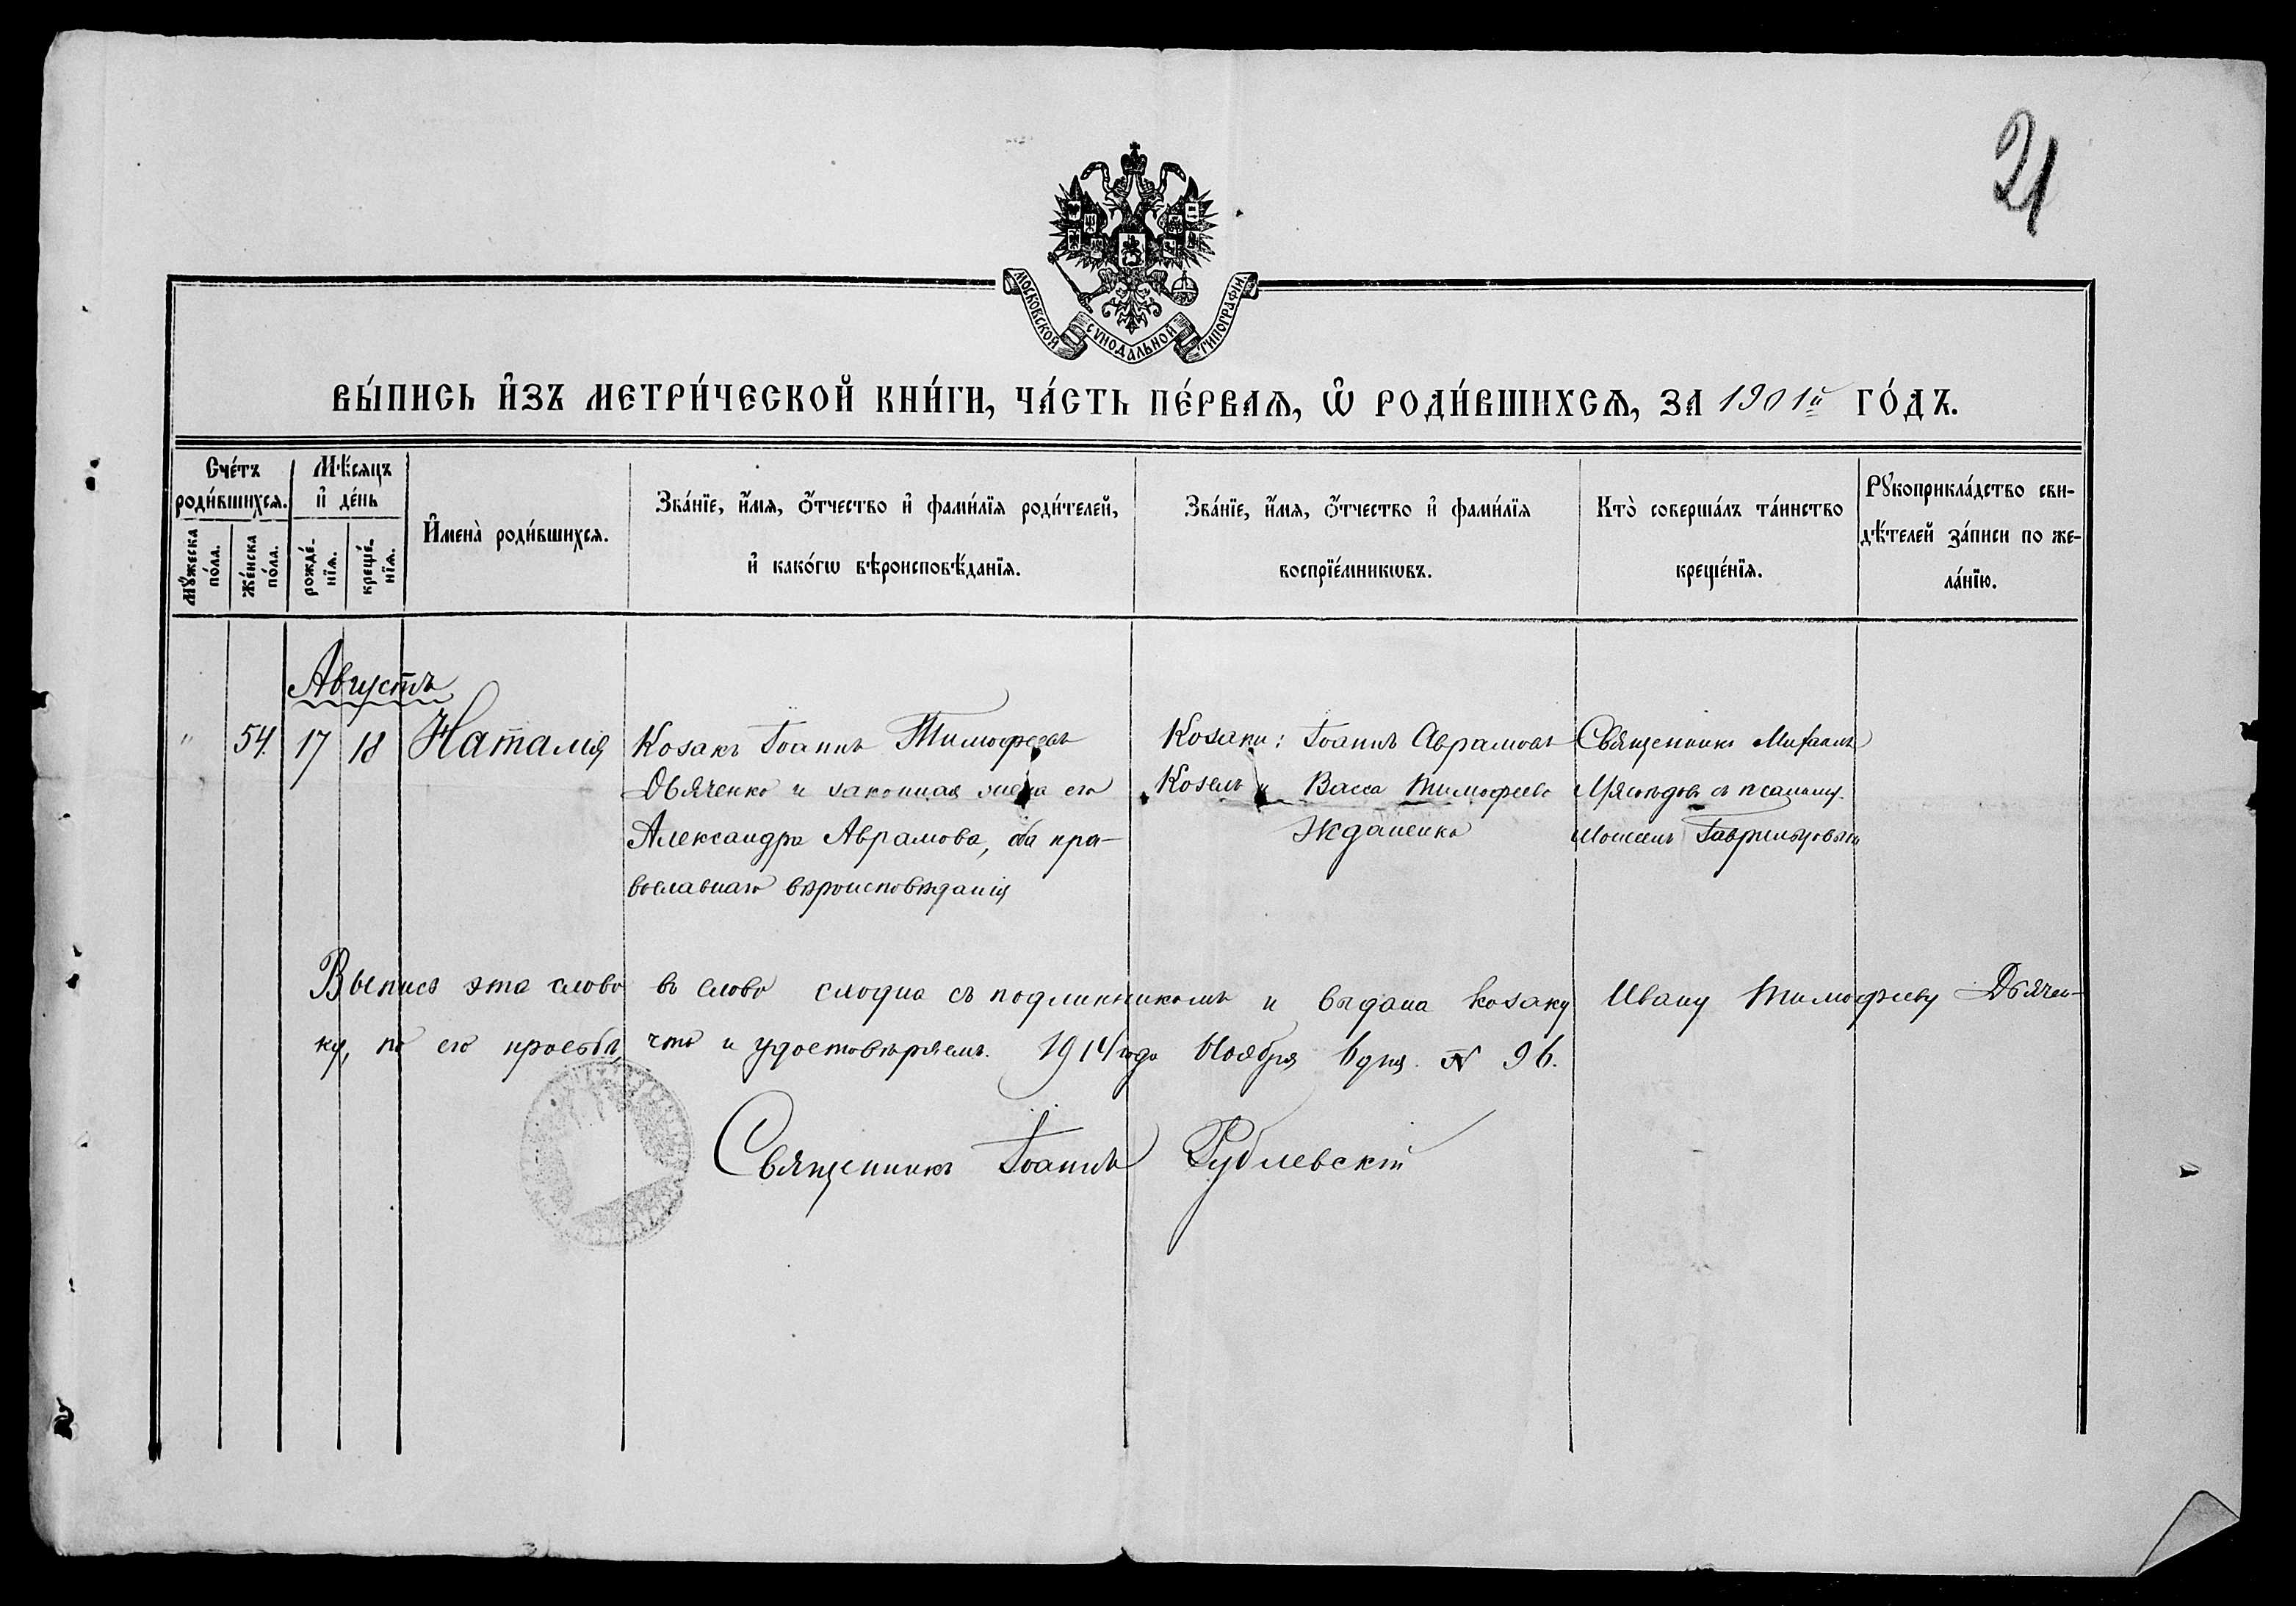 21
МОСКОВСКОЙ СѴНОДАЛЬНОЙ ТИПОГРАФІИ.
ВЫ́ПИСЬ И҆ЗЪ МЕТРИ́ЧЕСКОЙ КНИ́ГИ, ЧА́СТЬ ПЕ́РВАѦ, Ѡ҆ РОДИ́ВШИХСѦ, ЗА 1901й ГО́ДЪ.
Сче́тъ роди́вшихсѧ.
Мꙋ́жеска по́ла.
Же́нска по́ла.
Мѣ́сѧцъ и҆ де́нь
рожде́-нїѧ.
креще́-нїѧ.
И҆мена̀ роди́вшихсѧ.
Зва́нїе, и҆́мѧ, ѻ҆́тчество и҆ фами́лїѧ роди́телей,
и҆ како́гѡ вѣроисповѣ́данїѧ.
Зва́нїе, и҆́мѧ, ѻ҆́тчество и҆ фами́лїѧ
воспрїе́мникѡвъ.
Кто̀ соверша́лъ та́инство
креще́нїѧ.
Рꙋкоприкла́дство сви-
дѣ́телей за́писи по же-
ла́нїю.
Августъ
" 54. 17 18 Наталія
Козакъ Іоаннъ Тимофеевъ
Дьяченко и законная жена его
Александра Аврамова, оба пра-
вославнаго вѣроисповѣданія
Козаки: Іоаннъ Аврамовъ
Козелъ и Васса Тимофеева
Жданенко
Священникъ Михаилъ
съ псалом-
щикомъ
Выпись эта слово въ слово сходна съ подлинникомъ и выдана козаку Ивану Тимофееву Дьячен-
ку, по его просьбѣ, что и удостовѣряемъ. 1914 года Ноября 6 дня. № 96.
Священникъ Іоаннъ Рублевскій